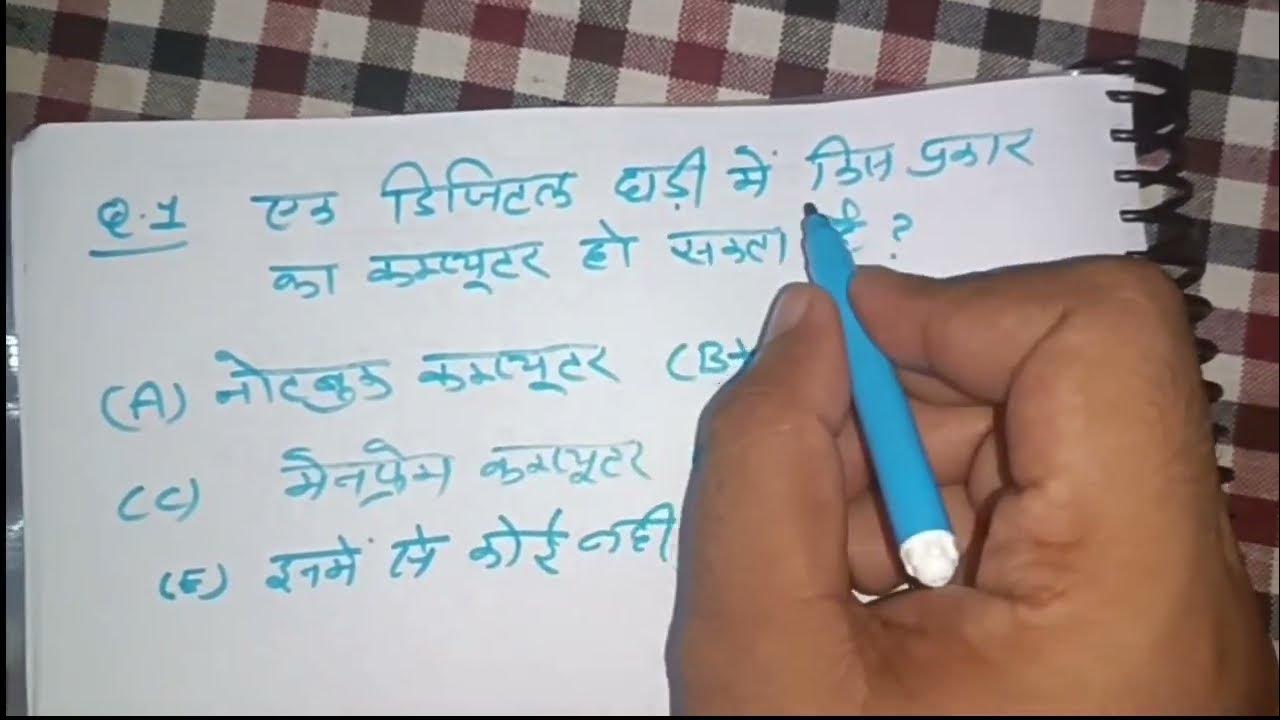 Q.1 एक डिजिटल घड़ी में किस प्रकार
का कम्प्यूटर हो सकता है ?
(A) नोटबुक कम्प्यूटर (B)
(C) मेनफ्रेम कम्प्यूटर
(E) इनमें से कोई नहीं